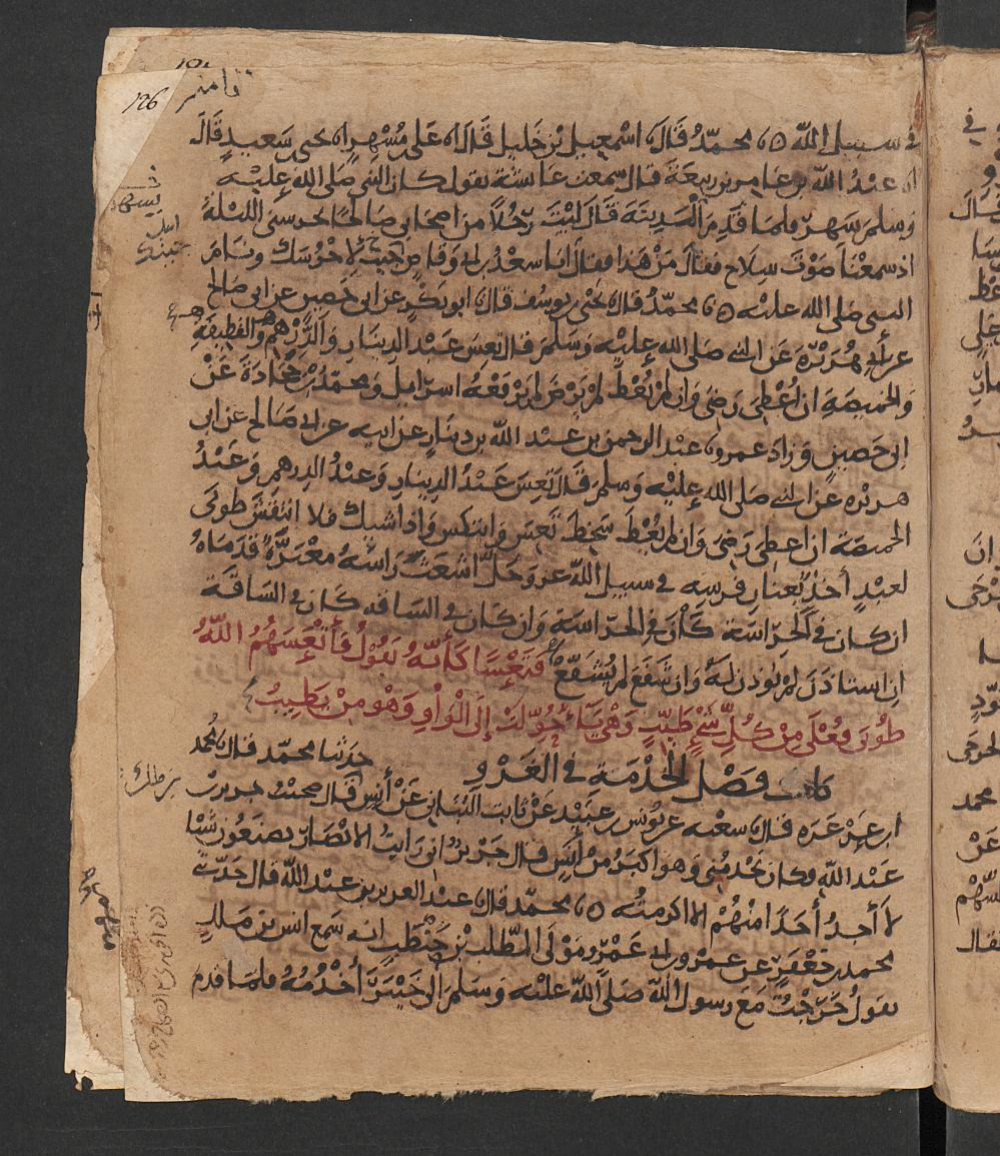 126
ثامنة
في سبيل الله ٥ نا محمد قال نا اسمعيل بن خليل قال نا علي بن مسهر نا يحيى بن سعيد قال
نا عبد الله بن عامر بن ربيعة قال سمعت عائشة تقول كان النبي صلى الله عليه
وسلم سهر فلما قدم المدينة قال ليت رجلا من اصحابي صالحا يحرسني الليلة
اذ سمعنا صوت سلاح فقال من هذا فقال انا سعد بن ابي وقاص جيت لاحرسك ونام
النبي صلى الله عليه ٥ نا محمد قال نا يحيى بن يوسف قال نا ابو بكر عن ابي حصين عن ابي صالح
عن أبي هريرة عن النبي صلى الله عليه وسلم قال تعس عبد الدينار والدرهم والقطيفة
والخميصة ان اعطي رضي وان لم يعط لم يرض لم يرفعه اسرايل ومحمد بن جحادة عن
ابي حصين وزاد عمرو نا عبد الرحمن بن عبد الله بن دينار عن ابيه عن ابي صالح عن ابي
هريرة عن النبي صلى الله عليه وسلم قال تعس عبد الدينار وعبد الدرهم وعبد
الخميصة ان اعطي رضي وان لم يعط سخط تعس وانتكس واذا شيك فلا انتقش طوبى
لعبد أخذ بعنان فرسه في سبيل الله عز وجل أشعث راسه مغبرة قدماه
ان كان في الحراسة كان في الحراسة وان كان في الساقة كان في الساقة
ان استاذن لم يوذن له وان شفع لم يشفع فتعسا كأنه يقول فأتعسهم الله
طوبى فعلى من كل شيء طيب وهي ياء حولت إلى الواو وهو من يطيب
باب فضل الخدمة في الغزو حدثنا محمد قال نا محمد
ابن عرعرة قال نا شعبة عن يونس بن عبيد عن ثابت البناني عن أنس قال صحبت جرير بن
عبد الله وكان يخدمني وهو اكبر من أنس قال جرير اني رايت الانصار يصنعون شيئا
لا أجد أحدا منهم الا اكرمته ٥ نا محمد قال نا عبد العزيز بن عبد الله قال حدثني
محمد بن جعفر عن عمرو بن ابي عمرو مولى المطلب بن حنطب انه سمع انس بن ملك
يقول خرجت مع رسول الله صلى الله عليه وسلم الى خيبر أخدمه فلما قدم